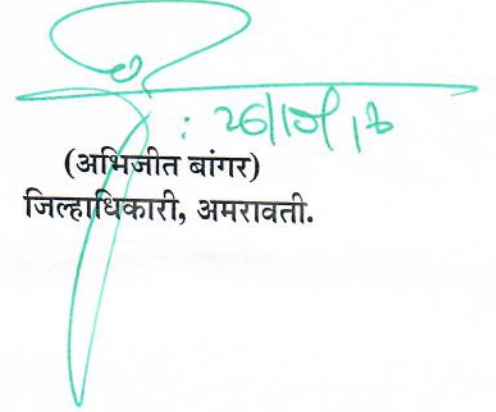 (अभिजीत बांगर)
जिल्हाधिकारी, अमरावती.